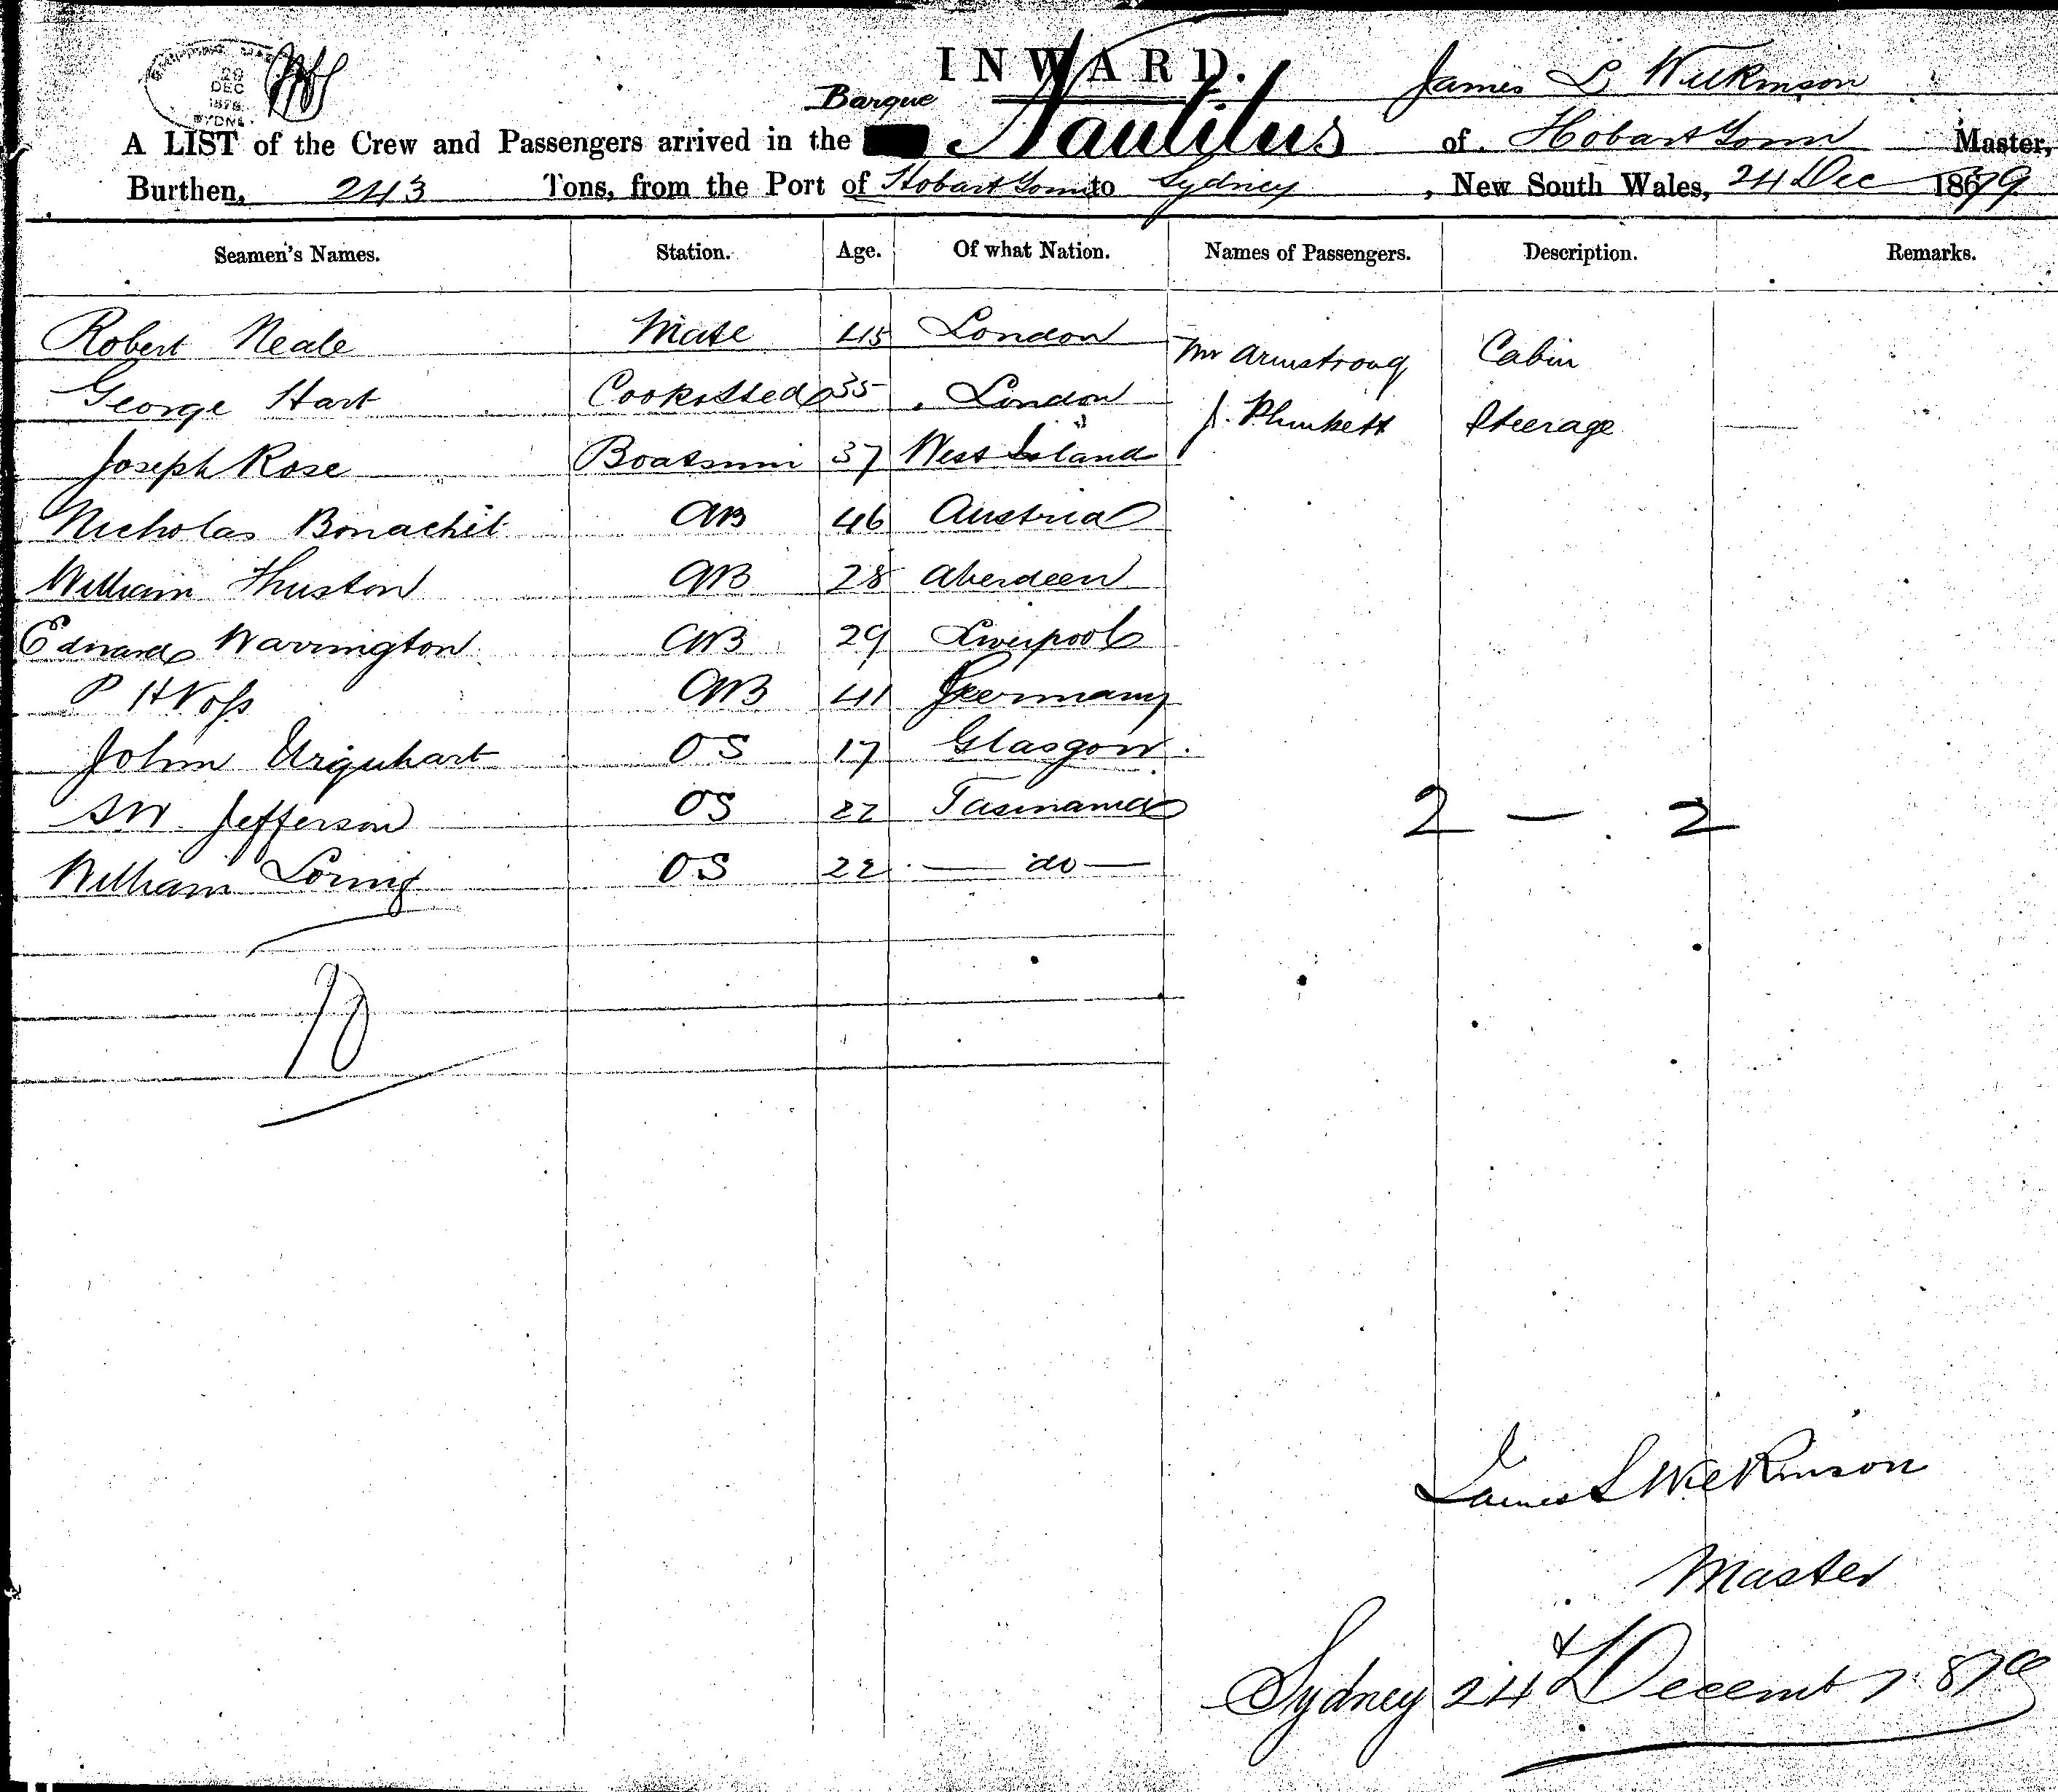 INWARD.
SHIPPING MASTER
20
DEC
1879
SYDNEY
Barque
James L Wilkinson
A LIST of the Crew and Passengers arrived in the Nautilus of Hobart Town Master,
Burthen, 243 Tons, from the Port of Hobart Town to Sydney, New South Wales, 24 Dec 1879
Seamen's Names. Station. Age. Of what Nation. Names of Passengers. Description. Remarks.
Robert Neale Mate 45 London
Mr Armstrong Cabin
George Hart Cook & Sted 35 London
J. Plunkett Steerage
Joseph Rose Boatsmn 37 West Island
Nicholas Bonachit AB 46 Austria
William Thuston AB 28 Aberdeen
Edward Warrington AB 29 Liverpool
P H Voss AB 41 Germany
John Urquhart OS 17 Glasgow
SW Jefferson OS 22 Tasmania
2 — 2
William Loring OS 22 — do —
10
James L Wilkinson
Master
Sydney 24th Decemb 1879